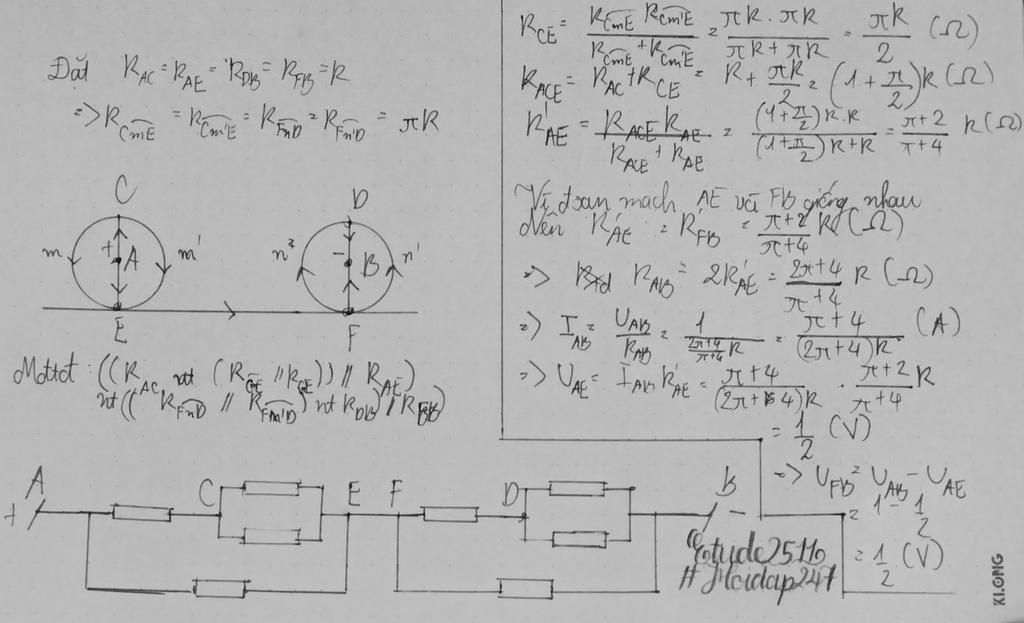 Đặt R_AC = R_AE = R_DB = R_FB = R
=> R_CmE = R_Cm'E = R_FnD = R_Fn'D = πR
C
D
m
+
A
m'
n
-
B
n'
E
F
Mạttđ: ((R_AC nt (R_CE // R_CE)) // R_AE)
nt((R_FnD // R_Fn'D) nt R_DB) // R_FB)
R_CE = (R_CmE R_Cm'E)/(R_CmE + R_Cm'E) = (πR.πR)/(πR + πR) = πR/2 (Ω)
R_ACE = R_AC + R_CE = R + πR/2 = (1 + π/2)R (Ω)
R'_AE = (R_ACE R_AE)/(R_ACE + R_AE) = ((1+π/2)R.R)/((1+π/2)R+R) = (π+2)/(π+4) R (Ω)
Vì đoạn mạch AE và FB giống nhau
Nên R'_AE = R'_FB = (π+2)/(π+4) R (Ω)
=> R_AB = 2R'_AE = (2π+4)/(π+4) R (Ω)
=> I_AB = U_AB/R_AB = 1/((2π+4)/(π+4) R) = (π+4)/((2π+4)R) (A)
=> U_AE = I_AB R'_AE = (π+4)/((2π+4)R) . (π+2)/(π+4) R
= 1/2 (V)
=> U_FB = U_AB - U_AE
= 1 - 1/2
= 1/2 (V)
A
+
C
E
F
D
B
-
Etude25110
#Hoidap247
KI.ONG